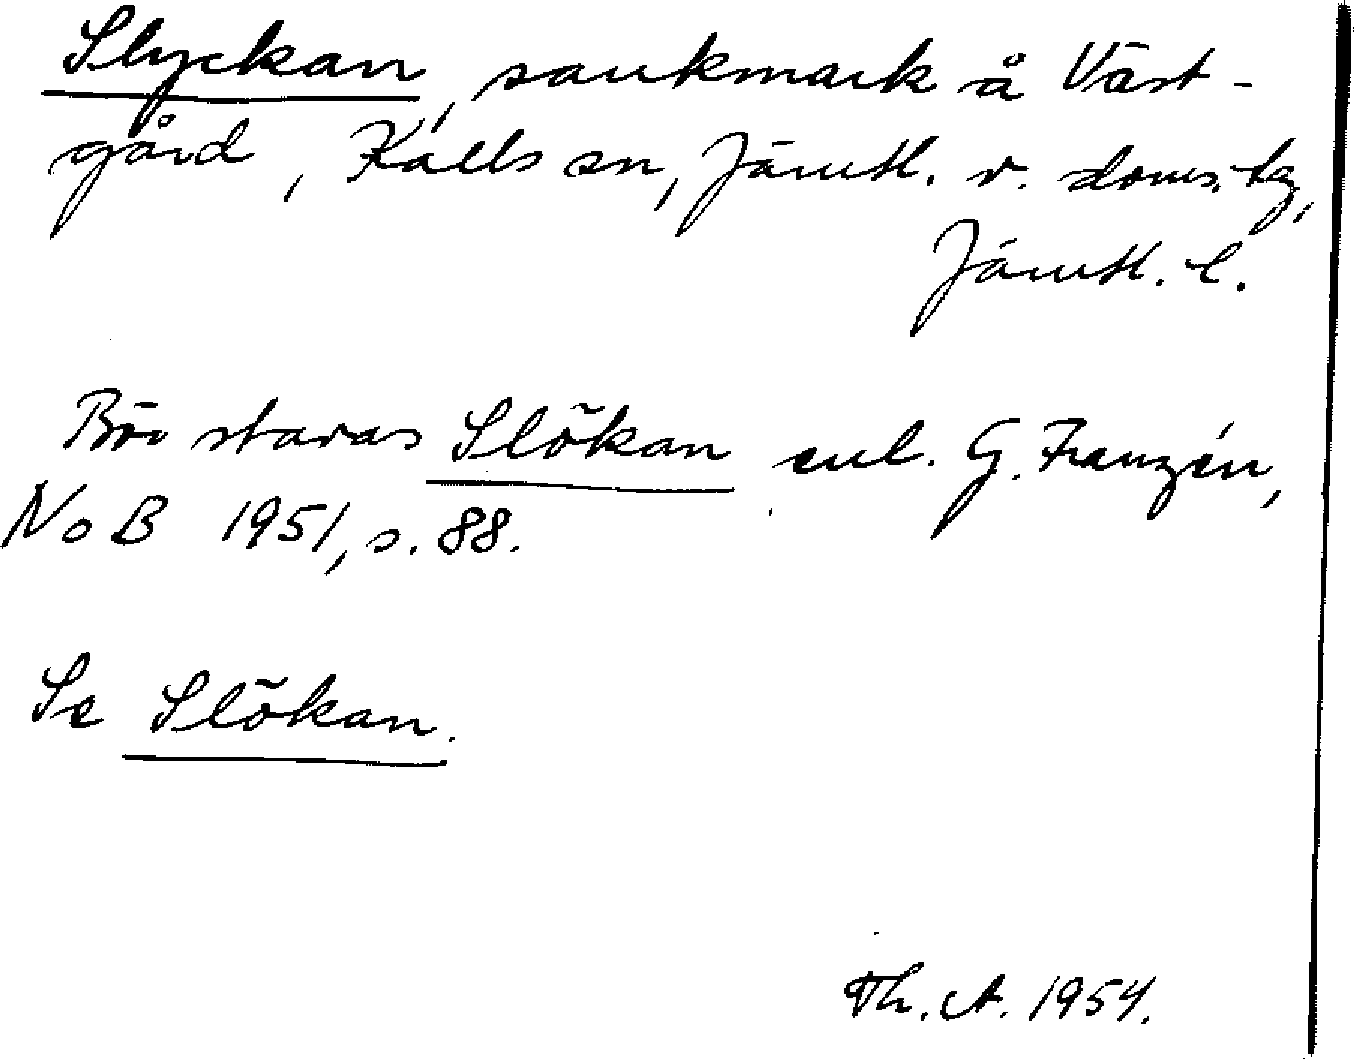 Slyckan, sankmark å Väst-
gård, Kalls sn, Jämtl. v. doms. tg,
Jämtl. l.
Bör stavas Slökan enl. G. Franzén,
NoB 1951, s. 88.
Se Slökan.
Th. A. 1954.